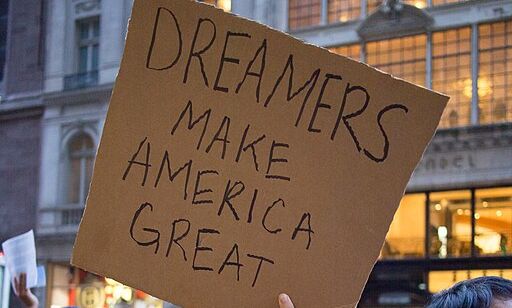 DREAMERS
MAKE
AMERICA
GREAT